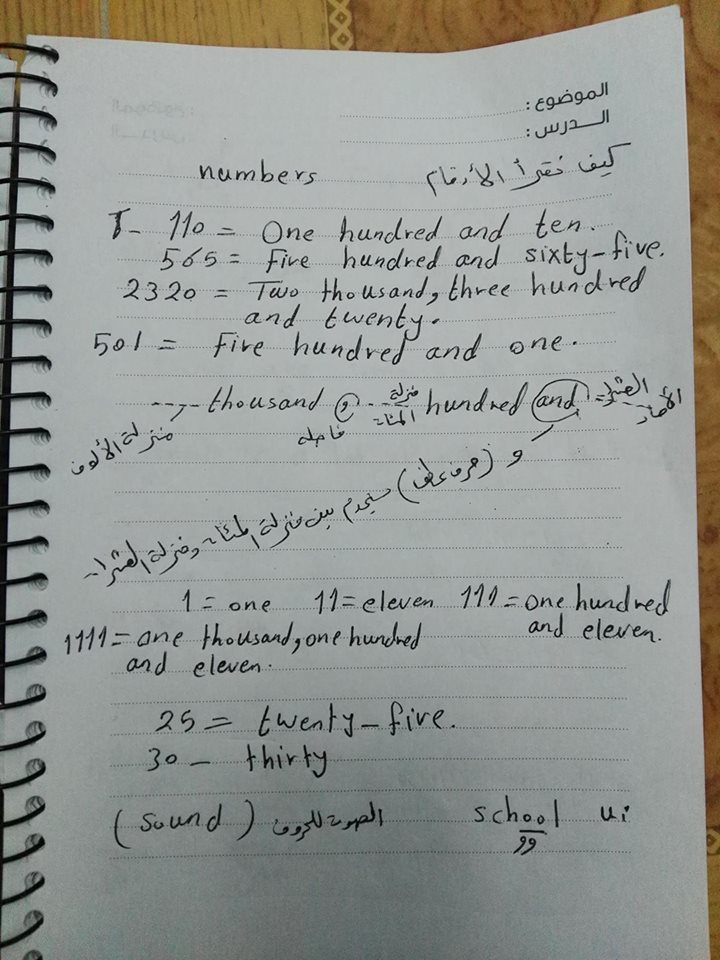 الموضوع :
الـــدرس :
numbers كيف نقرأ الأرقام
110 = One hundred and ten.
565 = Five hundred and sixty-five.
2320 = Two thousand, three hundred
and twenty.
501 = Five hundred and one.
thousand , منزلة المئات hundred and العشرات الآحاد
منزلة الألوف فاصلة
و (حرف عطف) يستخدم بين منزلة المئات ومنزلة العشرات
1 = one 11 = eleven 111 = one hundred
and eleven.
1111 = one thousand, one hundred
and eleven.
25 = twenty-five.
30 - thirty
(sound) الصوت للحروف school ui
وو